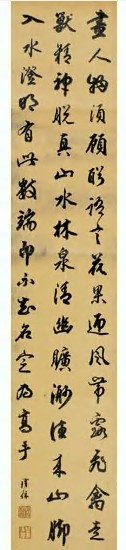 畫人物須顧盼語言花果迎風帶露飛禽走
獸精神脫真山水林泉清幽曠渺住來山腳
入水澄明有此數端即不知名定為高手